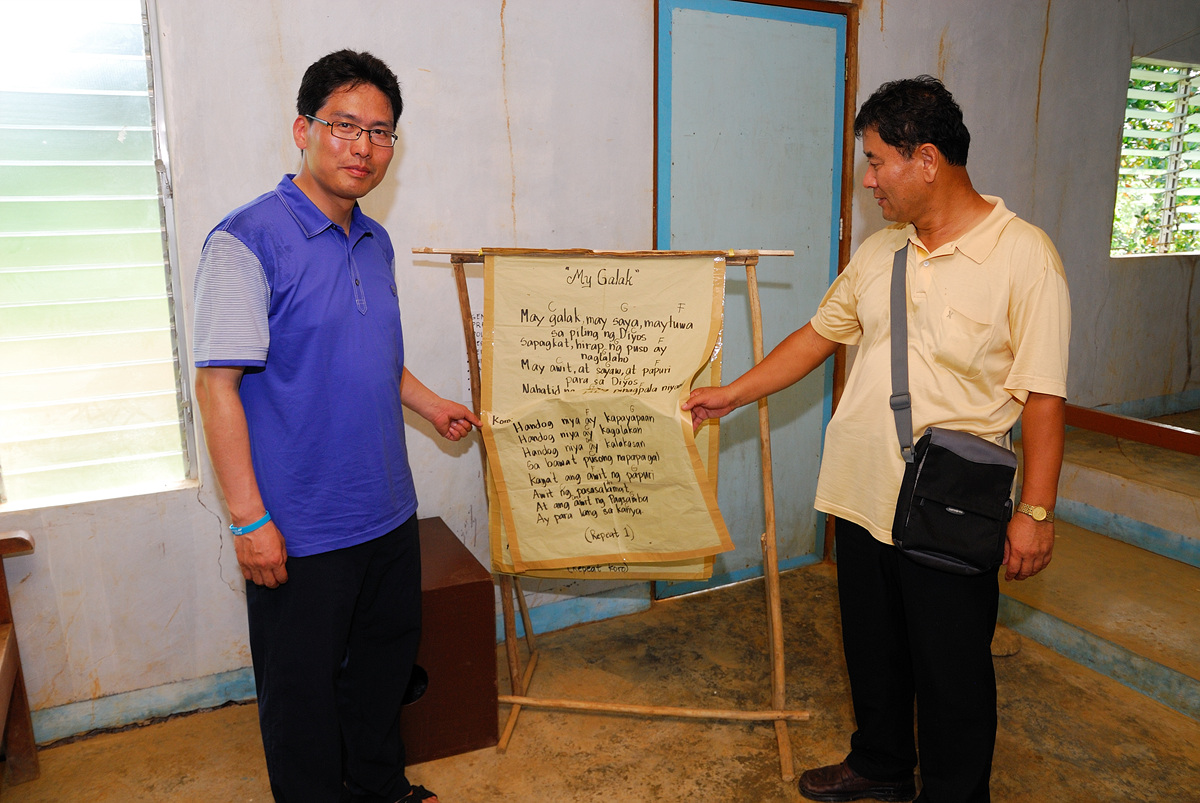 "My Galak"
C G F
May galak, may saya, may tuwa
sa piling ng Diyos
Sapagkat, hirap ng puso ay
naglalaho
May awit, at sayaw, at papuri
para sa Diyos
Nabatid ng pinagpala niya
Koro:
Handog niya ay kapayapaan
Handog niya ay kagalakan
Handog niya ay kalakasan
Sa bawat pusong napapagal
Kaya't ang awit ng papuri
Awit ng pasasalamat
At ang awit ng Pagsamba
Ay para lang sa Kanya
(Repeat 1)
(Repeat Koro)